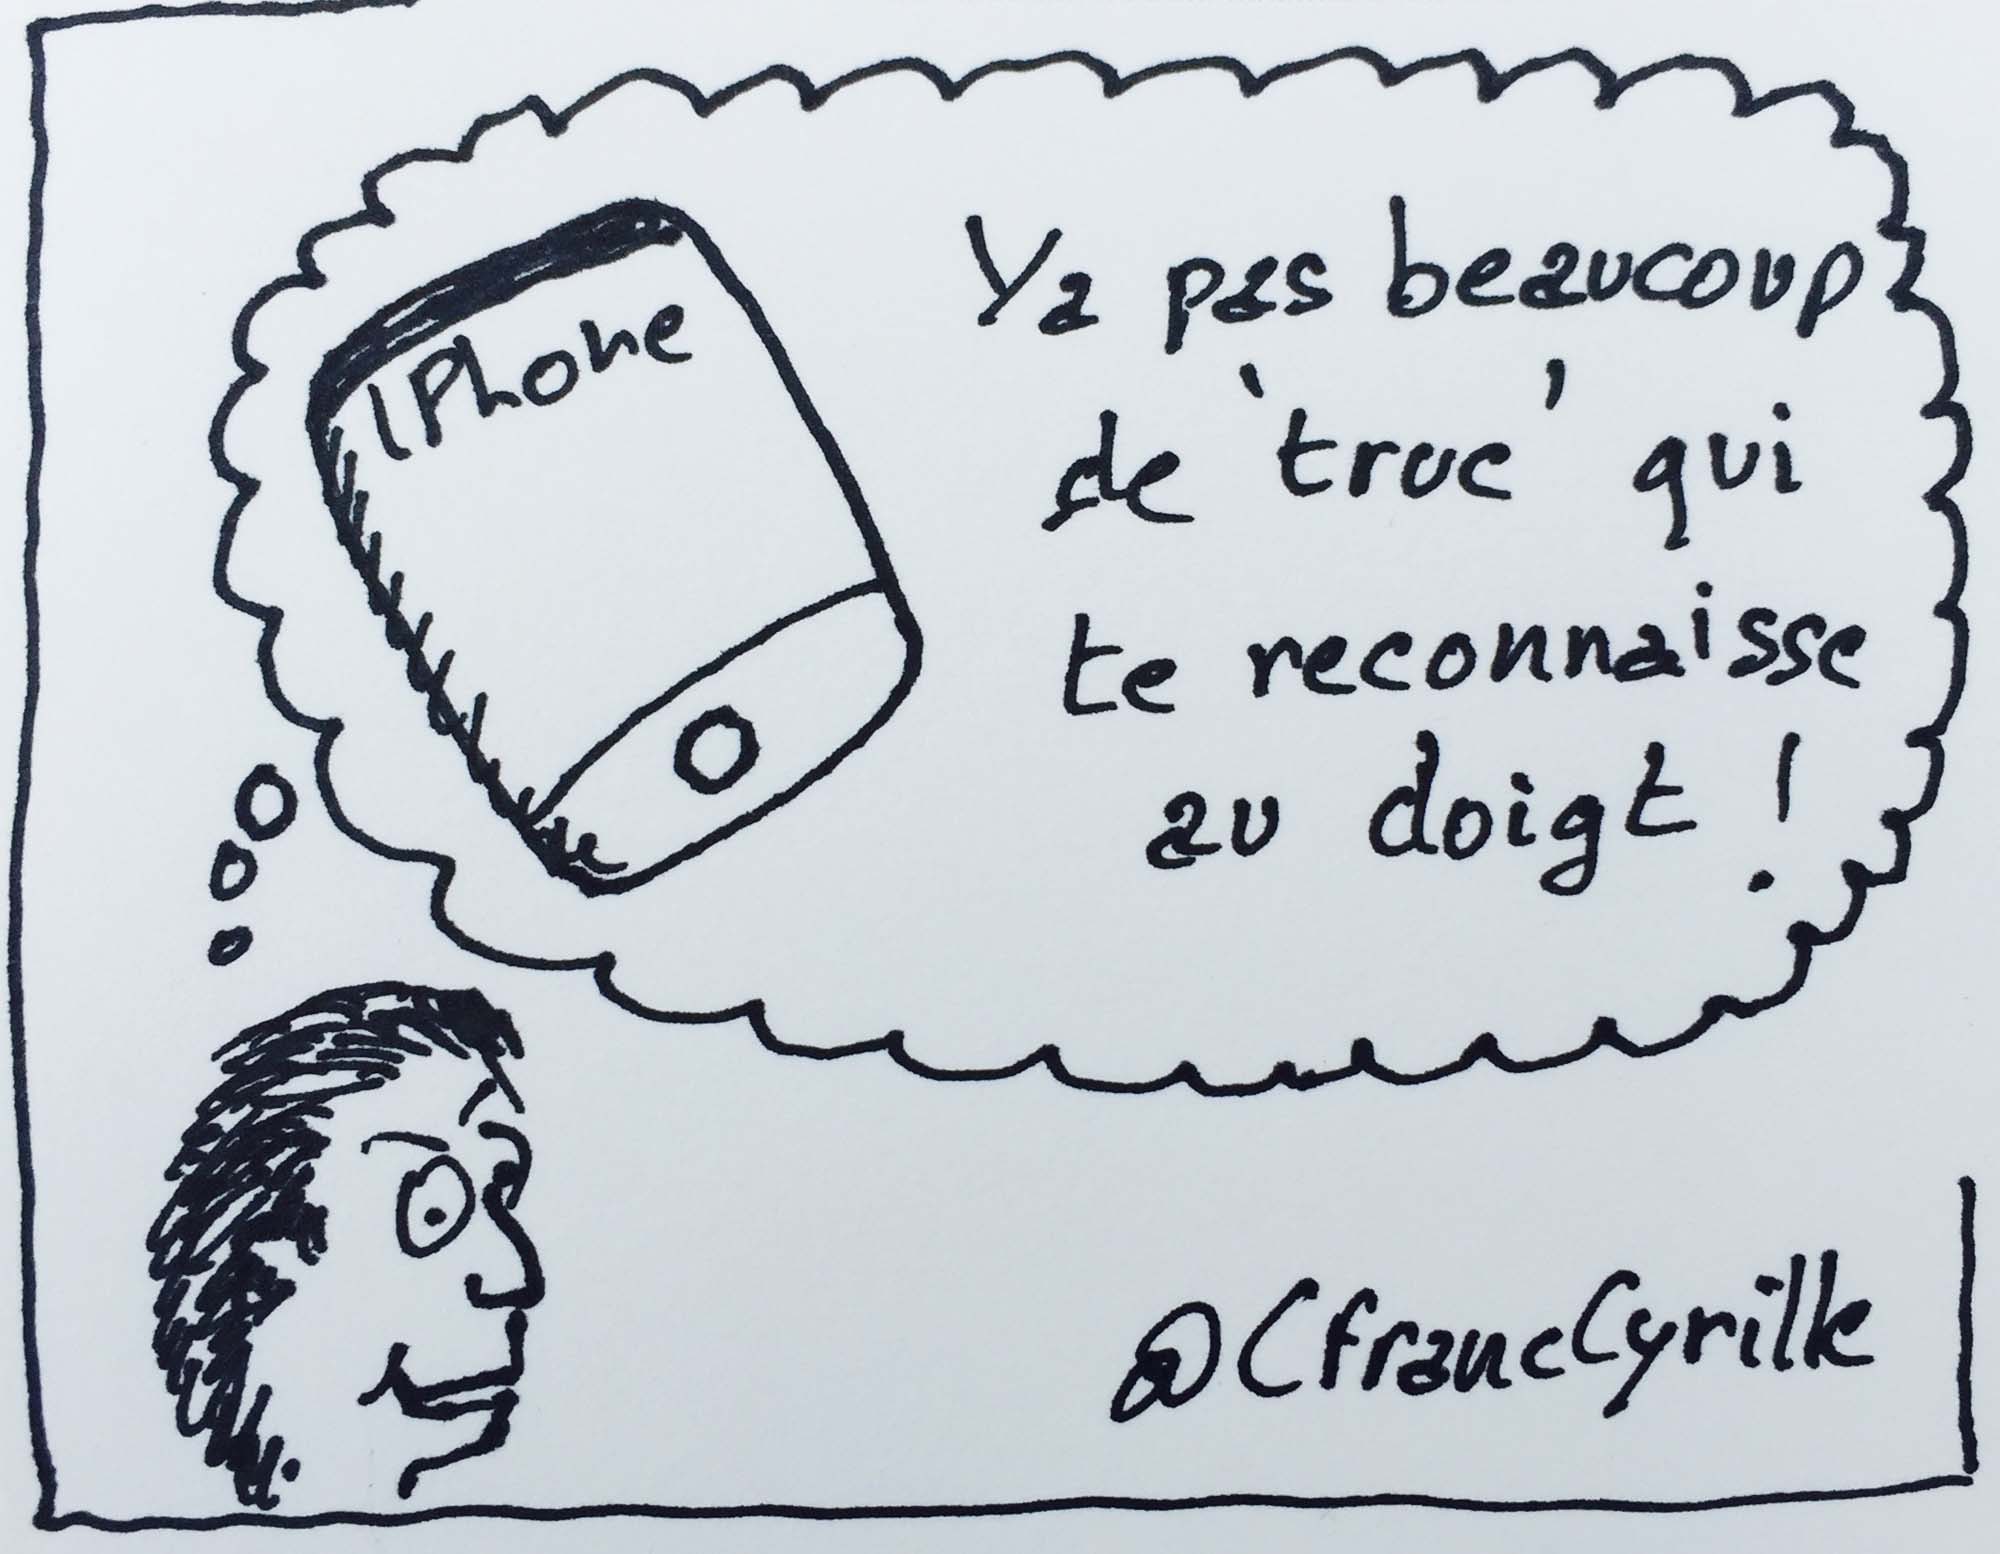 IPhone
Ya pas beaucoup
de 'truc' qui
te reconnaisse
au doigt !
@CfrancCyrille